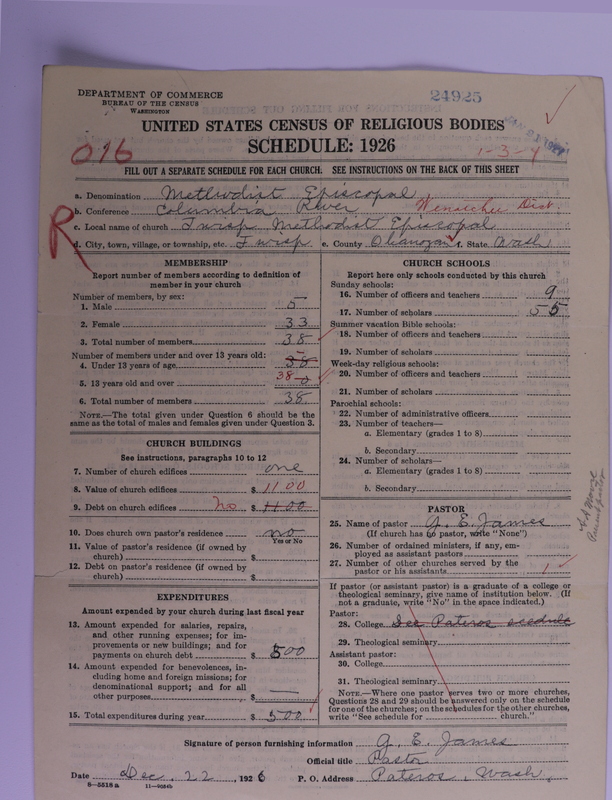 DEPARTMENT OF COMMERCE
BUREAU OF THE CENSUS
WASHINGTON
24925
UNITED STATES CENSUS OF RELIGIOUS BODIES
SCHEDULE: 1926
016
1-3-4
FILL OUT A SEPARATE SCHEDULE FOR EACH CHURCH. SEE INSTRUCTIONS ON THE BACK OF THIS SHEET
R
a. Denomination Methodist Episcopal
b. Conference Columbia River Wenatchee Dist.
c. Local name of church Twisp Methodist Episcopal
d. City, town, village, or township, etc. Twisp e. County Okanogan f. State Wash
MEMBERSHIP
Report number of members according to definition of
member in your church
Number of members, by sex:
1. Male 5
2. Female 33
3. Total number of members 38
Number of members under and over 13 years old:
4. Under 13 years of age 38
5. 13 years old and over 38
6. Total number of members 38
NOTE.—The total given under Question 6 should be the
same as the total of males and females given under Question 3.
CHURCH BUILDINGS
See instructions, paragraphs 10 to 12
7. Number of church edifices one
8. Value of church edifices $ 1100
9. Debt on church edifices no $ 1100
10. Does church own pastor's residence no
Yes or No
11. Value of pastor's residence (if owned by
church) $
12. Debt on pastor's residence (if owned by
church) $
EXPENDITURES
Amount expended by your church during last fiscal year
13. Amount expended for salaries, repairs,
and other running expenses; for im-
provements or new buildings; and for
payments on church debt $ 500
14. Amount expended for benevolences, in-
cluding home and foreign missions; for
denominational support; and for all
other purposes $ —
15. Total expenditures during year $ 500
CHURCH SCHOOLS
Report here only schools conducted by this church
Sunday schools:
16. Number of officers and teachers 9
17. Number of scholars 55
Summer vacation Bible schools:
18. Number of officers and teachers
19. Number of scholars
Week-day religious schools:
20. Number of officers and teachers
21. Number of scholars
Parochial schools:
22. Number of administrative officers
23. Number of teachers—
a. Elementary (grades 1 to 8)
b. Secondary
24. Number of scholars—
a. Elementary (grades 1 to 8)
b. Secondary
PASTOR
25. Name of pastor G. E. James
(If church has no pastor, write "None")
26. Number of ordained ministers, if any, em-
ployed as assistant pastors
27. Number of other churches served by the
pastor or his assistants 1
If pastor (or assistant pastor) is a graduate of a college or
theological seminary, give name of institution below. (If
not a graduate, write "No" in the space indicated.)
Pastor:
28. College See Pateros schedule
29. Theological seminary
Assistant pastor:
30. College
31. Theological seminary
NOTE.—Where one pastor serves two or more churches,
Questions 28 and 29 should be answered only on the schedule
for one of the churches; on the schedules for the other churches,
write "See schedule for church."
Signature of person furnishing information G. E. James
Official title Pastor
Date Dec. 22, 1926 P. O. Address Pateros, Wash.
8—5518 a